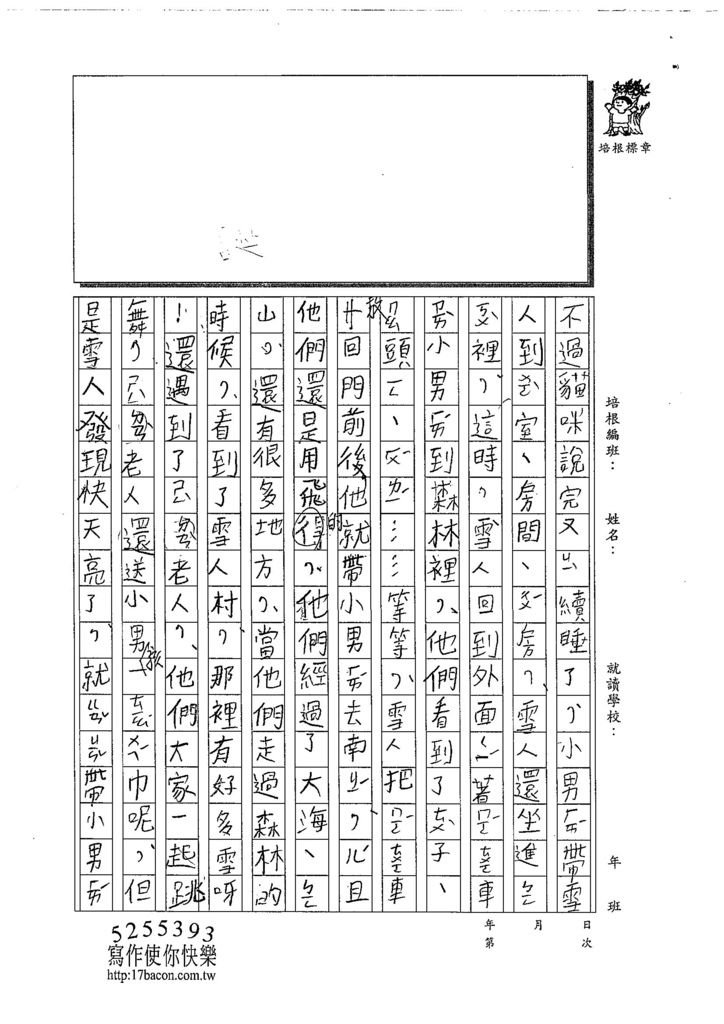 不過貓咪說完又續睡了，小男ㄏㄞˊ帶雪
人到室、房間、房，雪人還坐進
裡，這時，雪人回到外面ㄑㄧˊ著車
小男ㄏㄞˊ到森林裡，他們看到了ㄊㄨˋ子、
頭ㄧㄥ、ㄏㄨˊㄌㄧˊ……等等，雪人把車
放回門前後他就帶小男ㄏㄞˊ去南ㄐㄧˊ，且
他們還是用飛得的，他們經過了大海、
山，還有很多地方，當他們走過森林的
時候，看到了雪人村，那裡有好多雪呀
！還遇到了老人，他們大家一起跳
舞，老人還送小男孩一巾呢，但
是雪人發現快天亮了，就帶小男ㄏㄞˊ
培根標章
培根編班：
姓名：
就讀學校：
年 班
年 月 日
第 次
5255393
寫作使你快樂
http:17bacon.com.tw